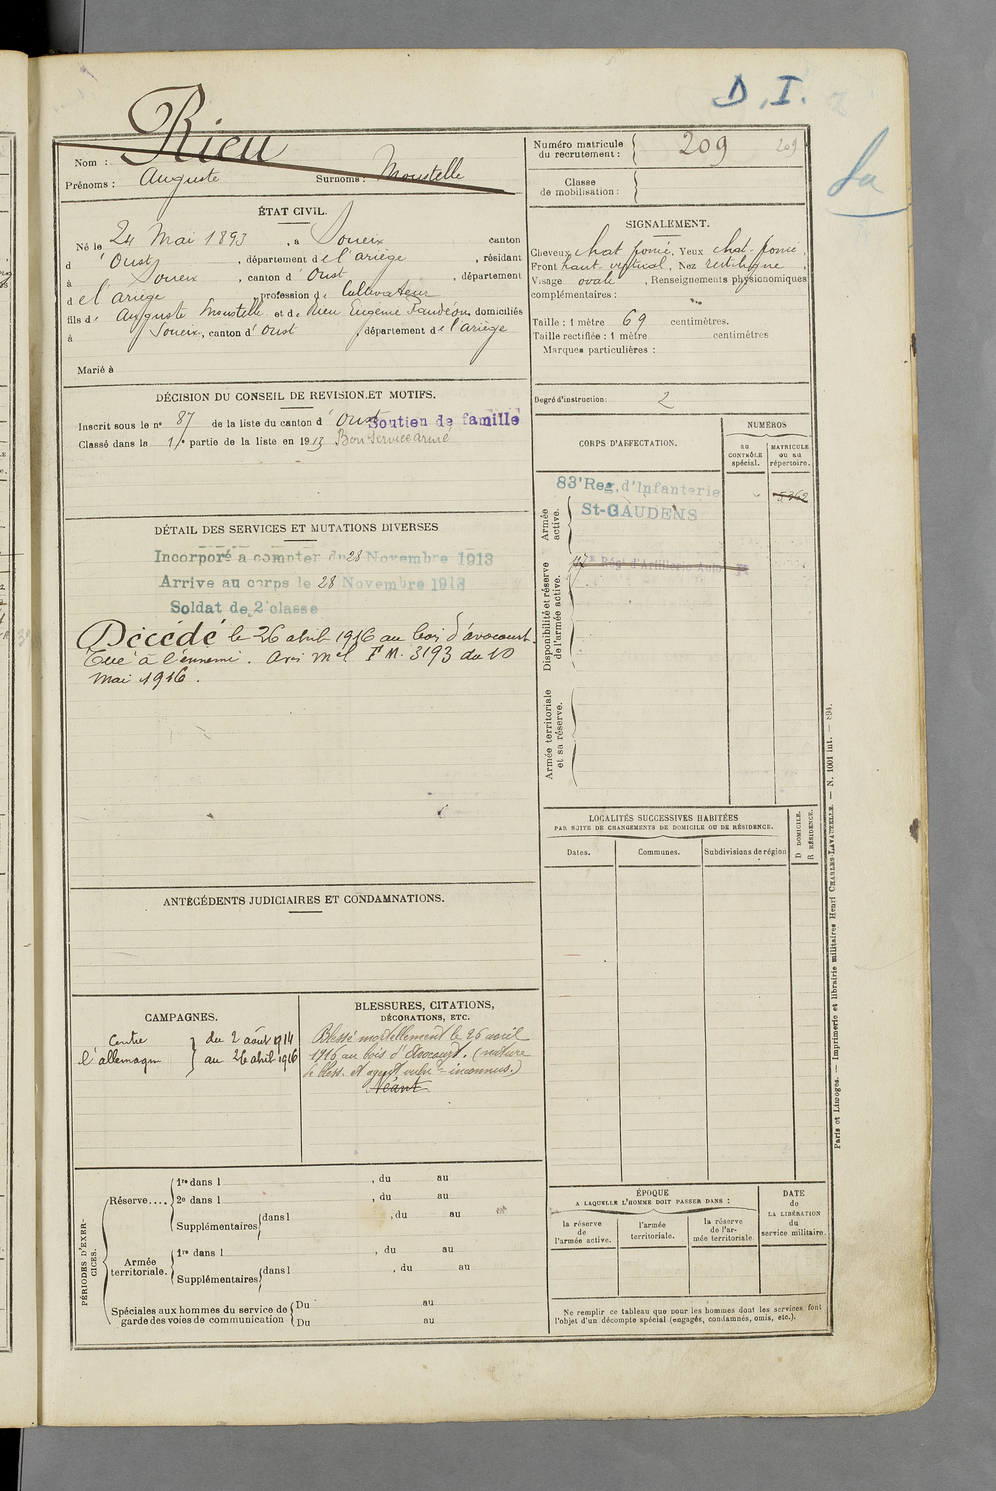 D. I.
Rieu
Nom :
Prénoms : Auguste Surnoms : Moustelle
Numéro matricule du recrutement : 209 209
Classe de mobilisation :
ÉTAT CIVIL.
Né le 24 Mai 1893, à Soueix canton
d'Oust, département de l'ariège, résidant
à Soueix, canton d'Oust, département
de l'ariège, profession de Cultivateur
fils de Auguste Moustelle et de Rieu Eugénie domiciliés
à Soueix, canton d'Oust, département de l'ariège
Marié à
SIGNALEMENT.
Cheveux chat foncé, Yeux chat. foncé,
Front haut vertical, Nez rectiligne,
Visage ovale, Renseignements physionomiques
complémentaires :
Taille : 1 mètre 69 centimètres.
Taille rectifiée : 1 mètre centimètres
Marques particulières :
Degré d'instruction : 2
DÉCISION DU CONSEIL DE REVISION ET MOTIFS.
Inscrit sous le n° 87 de la liste du canton d'Oust Soutien de famille
Classé dans la 1re partie de la liste en 1913 Bon service armé
DÉTAIL DES SERVICES ET MUTATIONS DIVERSES
Incorporé à compter du 28 Novembre 1913
Arrivé au corps le 28 Novembre 1913
Soldat de 2e classe
Décédé le 26 abril 1916 au bois d'avocourt.
Tué à l'ennemi. Avis Mel F M. 3193 du 10
Mai 1916.
CORPS D'AFFECTATION.
NUMÉROS
au CONTRÔLE spécial.
MATRICULE ou au répertoire.
Armée active.
83e Reg. d'Infanterie
St-GAUDENS
5362
Disponibilité et réserve de l'armée active.
Armée territoriale et sa réserve.
LOCALITÉS SUCCESSIVES HABITÉES
PAR SUITE DE CHANGEMENTS DE DOMICILE OU DE RÉSIDENCE.
Dates.
Communes.
Subdivisions de région
D DOMICILE.
R RÉSIDENCE.
ANTÉCÉDENTS JUDICIAIRES ET CONDAMNATIONS.
CAMPAGNES.
Contre l'allemagne } du 2 août 1914
au 26 abril 1916
BLESSURES, CITATIONS,
DÉCORATIONS, ETC.
Blessé mortellement le 26 avril
1916 au bois d'Avocourt. (nature
de bless. et agent vulnt inconnus.)
Néant
PÉRIODES D'EXERCICES.
Réserve....
1re dans l , du au
2e dans l , du au
Supplémentaires dans l , du au
Armée territoriale.
1re dans l , du au
Supplémentaires dans l , du au
Spéciales aux hommes du service de garde des voies de communication
Du au
Du au
ÉPOQUE
A LAQUELLE L'HOMME DOIT PASSER DANS :
la réserve de l'armée active.
l'armée territoriale.
la réserve de l'armée territoriale
DATE de LA LIBÉRATION du service militaire.
Ne remplir ce tableau que pour les hommes dont les services font
l'objet d'un décompte spécial (engagés, condamnés, omis, etc.).
Paris et Limoges. — Imprimerie et librairie militaires Henri CHARLES-LAVAUZELLE. — N. 1001 int. — 894.